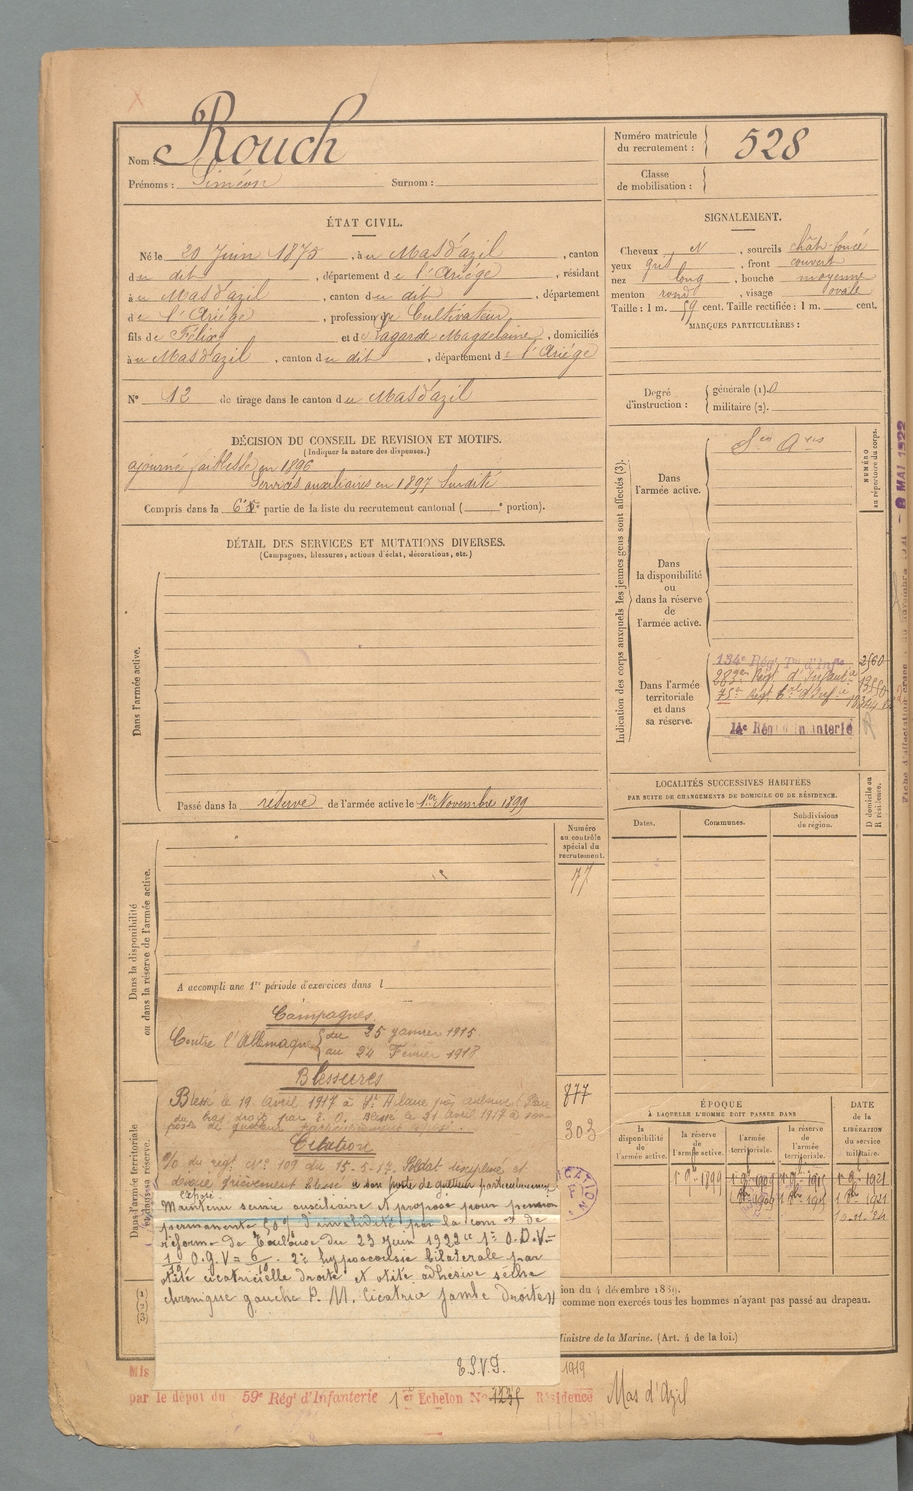 Nom : Rouch
Prénoms : Siméon Surnom :
Numéro matricule du recrutement : 528
Classe de mobilisation :
ÉTAT CIVIL.
Né le 20 Juin 1875, à u Mas d'azil, canton
du dit, département de l'Ariége, résidant
à u Mas d'azil, canton du dit, département
de l'Ariége, profession de Cultivateur
fils de Félix et de Lagarde Magdelaine, domiciliés
à u Mas d'azil, canton du dit, département de l'Ariége
N° 12 de tirage dans le canton du Mas d'azil
SIGNALEMENT.
Cheveux N, sourcils chât-foncé
yeux gris, front couvert
nez long, bouche moyenne
menton rond, visage ovale
Taille : 1 m. 59 cent. Taille rectifiée : 1 m. cent.
MARQUES PARTICULIÈRES :
Degré d'instruction : générale (1). 0
militaire (2).
DÉCISION DU CONSEIL DE REVISION ET MOTIFS.
(Indiquer la nature des dispenses.)
ajourné faiblesse en 1896
Services auxiliaires en 1897 Surdité
Compris dans la 6e partie de la liste du recrutement cantonal ( e portion).
DÉTAIL DES SERVICES ET MUTATIONS DIVERSES.
(Campagnes, blessures, actions d'éclat, décorations, etc.)
Dans l'armée active.
Passé dans la réserve de l'armée active le 1er Novembre 1899
Indication des corps auxquels les jeunes gens sont affectés (3).
NUMÉRO au répertoire du corps.
Dans l'armée active.
Dans la disponibilité ou dans la réserve de l'armée active.
Dans l'armée territoriale et dans sa réserve.
134e Régt Tal d'Infie
283e Régt d'Infantie
75e Régt
14e Régt Infanterie
LOCALITÉS SUCCESSIVES HABITÉES
PAR SUITE DE CHANGEMENTS DE DOMICILE OU DE RÉSIDENCE.
Dates. Communes. Subdivisions de région. D domicile ou R résidence.
Dans la disponibilité ou dans la réserve de l'armée active.
Numéro au contrôle spécial du recrutement.
77
A accompli une 1re période d'exercices dans l
Campagnes.
Contre l'Allemagne du 25 janvier 1915
au 24 Février 1918
Blessures
Blessé le 19 Avril 1917 à St Hilaire
Blessé le 21 Avril 1917 à son
poste de guetteur particulièrement exposé.
Citation
O/o du régt No 109 du 15-5-17. Soldat discipliné et
grièvement blessé à son poste de guetteur particulièrement
exposé.
Maintenu service auxiliaire et proposé pour pension
permanente 50% d'invalidité par la comon de
réforme de Toulouse du 23 Juin 1922
2e hypoacousie bilaterale par
otite cicatricielle droite et otite adhesive sèche
chronique gauche P. M. Cicatrice jambe droite
E.S.V.P.
Dans l'armée territoriale
877
303
ÉPOQUE
À LAQUELLE L'HOMME DOIT PASSER DANS
la disponibilité de l'armée active. la réserve de l'armée active. l'armée territoriale. la réserve de l'armée territoriale.
DATE de la LIBÉRATION du service militaire.
ion du 4 décembre 1889.
comme non exercés tous les hommes n'ayant pas passé au drapeau.
Ministre de la Marine. (Art. 4 de la loi.)
1919
par le dépôt du 59e Régt d'Infanterie 1er Echelon No Résidence Mas d'Azil